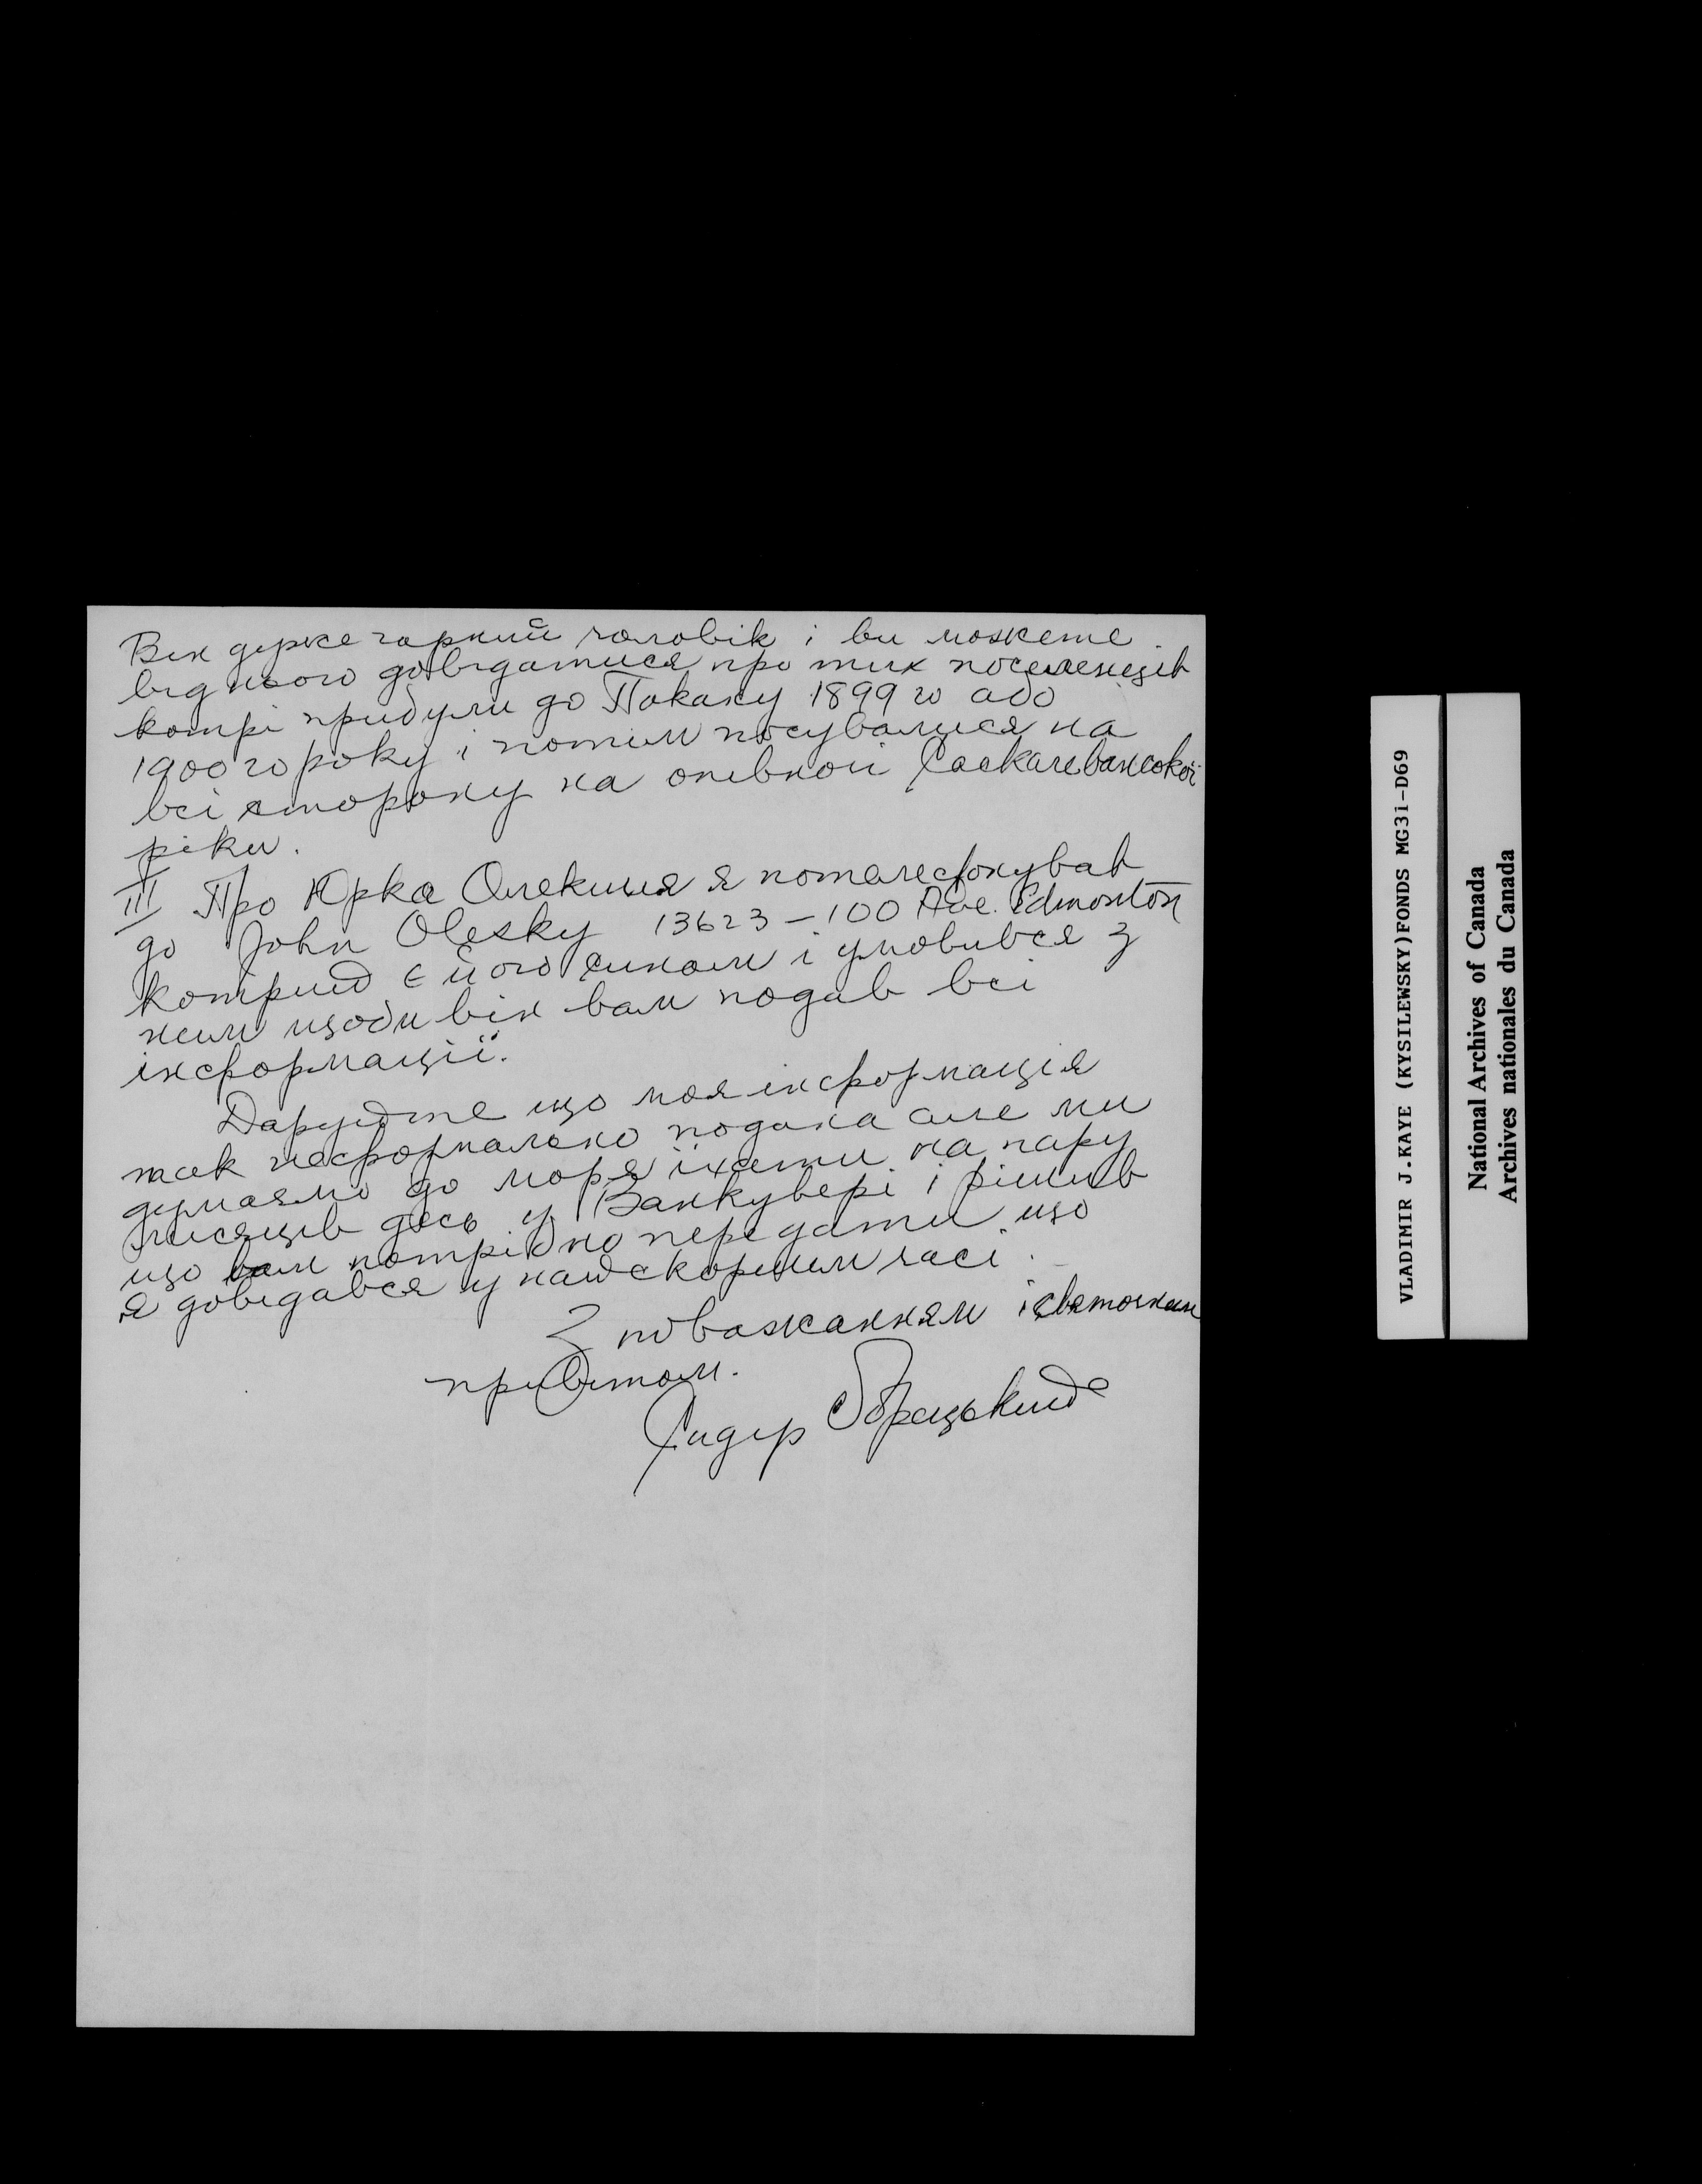 Він дуже гарний чоловік і ви можете
від нього довідатися про тих поселенців
котрі прибули до Пакану 1899 го або
1900 го року і потім посувалися на
всі сторону на опівної Саскачеванської
ріки.
III Про Юрка Олекшия я потелефонував
до John Olesky 13623 - 100 Ave. Edmonton
котрий є його сином і умовився з
ним щоби він вам подав всі
інформації.
Даруйте що моя інформація
так неформально подана але ми
думаємо до моря їхати на пару
місяців десь у Ванкувері і рішив
що вам потрібно передати що
я довідався у найскоршим часі.
З поважанням і святочним
привітом.
Сидір Обрацький
VLADIMIR J.KAYE (KYSILEWSKY)FONDS MG31-D69
National Archives of Canada
Archives nationales du Canada